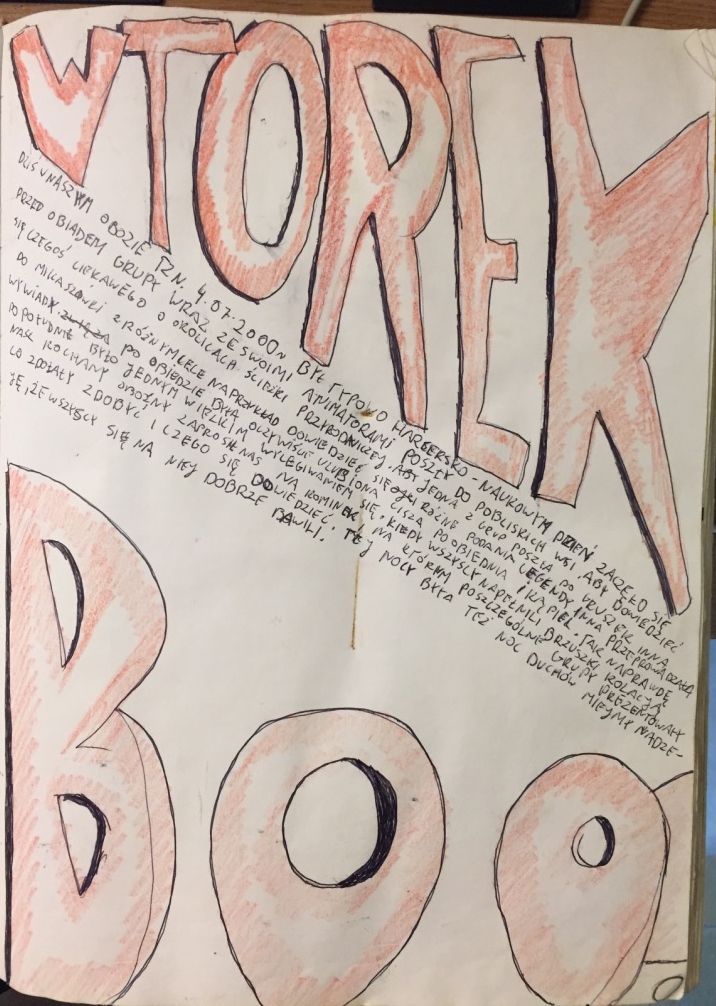 WTOREK
DZIŚ W NASZYM OBOZIE TZN. 4.07.2000R BYŁ TYPOWO HARCERSKO-NAUKOWYM DZIEŃ ZACZĘŁO SIĘ
PRZED OBIADEM GRUPY WRAZ ZE SWOIMI ANIMATORAMI POSZŁY DO POBLISKICH WSI, ABY DOWIEDZIEĆ
SIĘ CZEGOŚ CIEKAWEGO O OKOLICACH ŚCIEŻKI PRZYRODNICZEJ. ABY JEDNA Z GRUP POSZŁA PO INNA
DO MIKASZÓWKI Z RÓŻNYM CELE NAPRZYKŁAD DOWIEDZIEĆ SIĘ RÓŻNE PODANIA LEGENDY INNA PRZEPROWADZAŁA
WYWIADY. PO OBIEDZIE BYŁA OCZYWIŚCIE ULUBIONA CISZA POOBIEDNIA I KĄPIEL. TAK NAPRAWDĘ
POPOŁUDNIE BYŁO JEDNYM WIELKIM WYLEGIWANIEM SIĘ, KIEDY WSZYSCY NAPEŁNILI BRZUSZKI KOLACJĄ
NASZ KOCHANY OBOŹNY ZAPROSIŁ NAS NA KOMINEK NA KTÓRYM POSZCZEGÓLNE GRUPY PREZENTOWAŁY
CO ZDOŁAŁY ZDOBYĆ I CZEGO SIĘ DOWIEDZIEĆ. TEJ NOCY BYŁA TEŻ NOC DUCHÓW MIEJMY NADZE-
JĘ, ŻE WSZYSCY SIĘ NA NIEJ DOBRZE BAWILI.
BOO